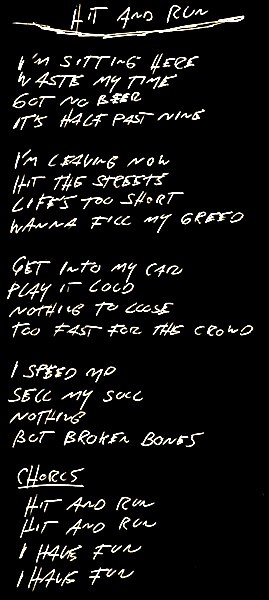 HIT AND RUN
I'M SITTING HERE
WASTE MY TIME
GOT NO BEER
IT'S HALF PAST NINE
I'M LEAVING NOW
HIT THE STREETS
LIFE'S TOO SHORT
WANNA FILL MY GREED
GET INTO MY CAR
PLAY IT LOUD
NOTHING TO LOOSE
TOO FAST FOR THE CROWD
I SPEED UP
SELL MY SOUL
NOTHING
BUT BROKEN BONES
CHORUS
HIT AND RUN
HIT AND RUN
I HAVE FUN
I HAVE FUN